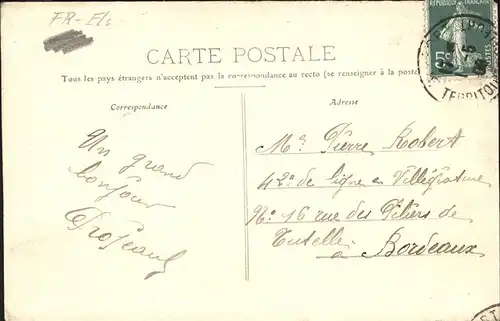 FR-E/s
RÉPUBLIQUE FRANÇAISE
5c
TERRITOI
CARTE POSTALE
Tous les pays étrangers n'acceptent pas la correspondance au recto (se renseigner à la poste)
Correspondance
Adresse
Un grand
bonjour
Mr Pierre Robert
42e de ligne en Villégiature
No 16 rue des Piliers de
Tutelle
à Bordeaux